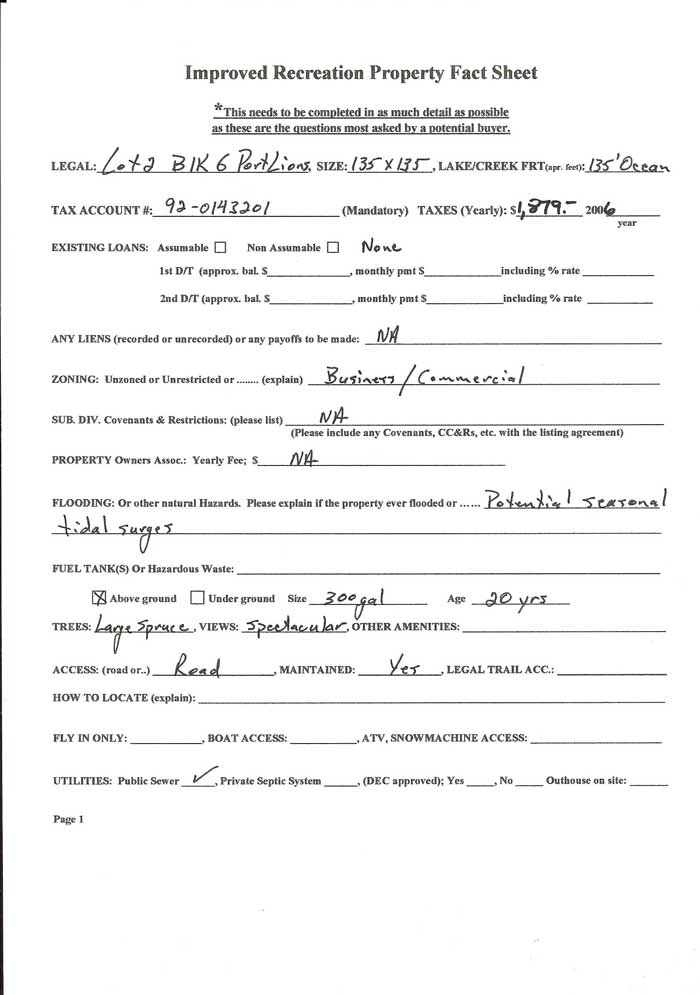 Improved Recreation Property Fact Sheet
*This needs to be completed in as much detail as possible
as these are the questions most asked by a potential buyer.
LEGAL: Lot 2 BlK 6 Port Lions, SIZE: 135 X 135, LAKE/CREEK FRT(apr. feet): 135' Ocean
TAX ACCOUNT #: 92-0143201 (Mandatory) TAXES (Yearly): $1,879.- 2006
year
EXISTING LOANS: Assumable ☐ Non Assumable ☐ None
1st D/T (approx. bal. $____________, monthly pmt $____________including % rate ____________
2nd D/T (approx. bal. $____________, monthly pmt $____________including % rate ____________
ANY LIENS (recorded or unrecorded) or any payoffs to be made: NA
ZONING: Unzoned or Unrestricted or ........ (explain) Business / Commercial
SUB. DIV. Covenants & Restrictions: (please list) NA
(Please include any Covenants, CC&Rs, etc. with the listing agreement)
PROPERTY Owners Assoc.: Yearly Fee; $ NA
FLOODING: Or other natural Hazards. Please explain if the property ever flooded or ...... Potential seasonal
tidal surges
FUEL TANK(S) Or Hazardous Waste: ____________
☒ Above ground ☐ Under ground Size 300 gal Age 20 yrs
TREES: Large Spruce, VIEWS: Spectacular, OTHER AMENITIES: ____________
ACCESS: (road or..) Road, MAINTAINED: Yes, LEGAL TRAIL ACC.: ____________
HOW TO LOCATE (explain): ____________
FLY IN ONLY: ____________, BOAT ACCESS: ____________, ATV, SNOWMACHINE ACCESS: ____________
UTILITIES: Public Sewer ✓, Private Septic System _____, (DEC approved); Yes _____, No _____ Outhouse on site: ______
Page 1